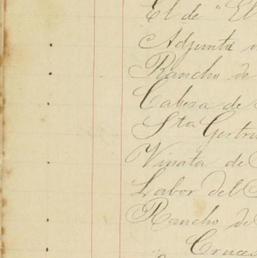 El de "El
Adjunta
Rancho de
Cabeza de
Sta Gertru
Vinata de
Labor del C
Rancho de
Cruces